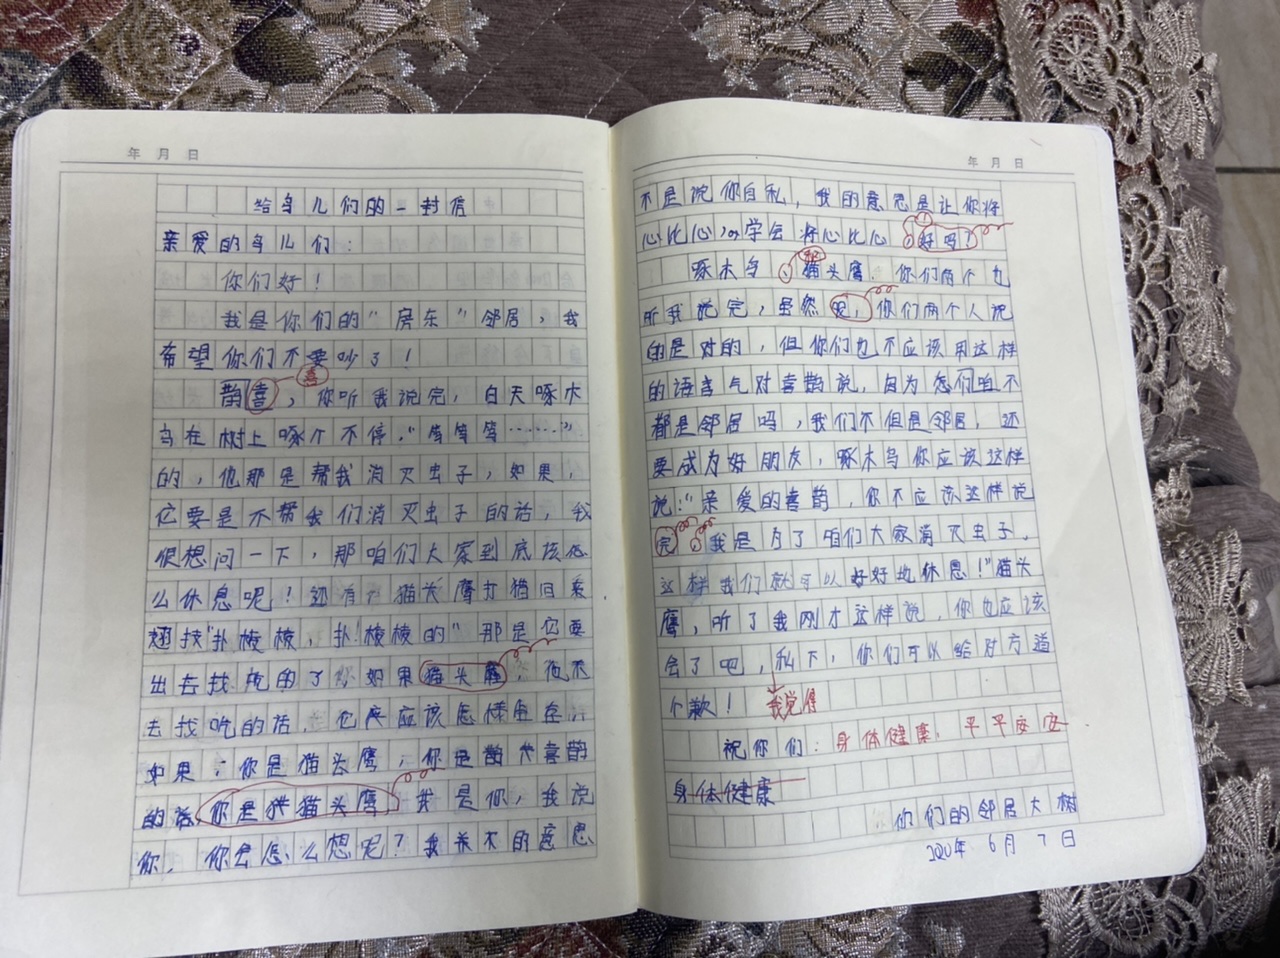 年 月 日
给鸟儿们的一封信
亲爱的鸟儿们:
你们好!
我是你们的"房东"邻居,我
希望你们不要吵了!
喜
鹊喜,你听我说完,白天啄木
鸟在树上啄个不停,"笃笃笃……"
的,也那是帮我消灭虫子,如果,
它要是不帮我们消灭虫子的话,我
便想问一下,那咱们大家到底该怎
么休息呢!还有,猫头鹰打猎回来
翅技"扑棱棱,扑棱棱的"那是它要
出去找吃的了 如果猫头鹰,他不
去找吃的话,它 应该怎样生存
如果,你是猫头鹰,你是 喜鹊
的话,你是 猫头鹰,我是你,我说
你,你会怎么想呢?我 的意思
年 月 日
不是说你自私,我的意思是让你将
心比心,学会将心比心,好吗?
啄木鸟、猫头鹰,你们两个也
听我说完,虽然呢,你们两个人说
的是对的,但你们也不应该用这样
的语言气对喜鹊说,因为 们咱不
都是邻居吗,我们不但是邻居,还
要成为好朋友,啄木鸟你应该这样
说:"亲爱的喜鹊,你不应该这样说
完,我是为了咱们大家消灭虫子,
这样我们就可以好好地休息!"猫头
鹰,听了我刚才这样说,你也应该
会了吧,私下,你们可以给对方道
个歉! 我觉得
祝你们:身体健康,平平安安
身体健康
你们的邻居大树
6月7日